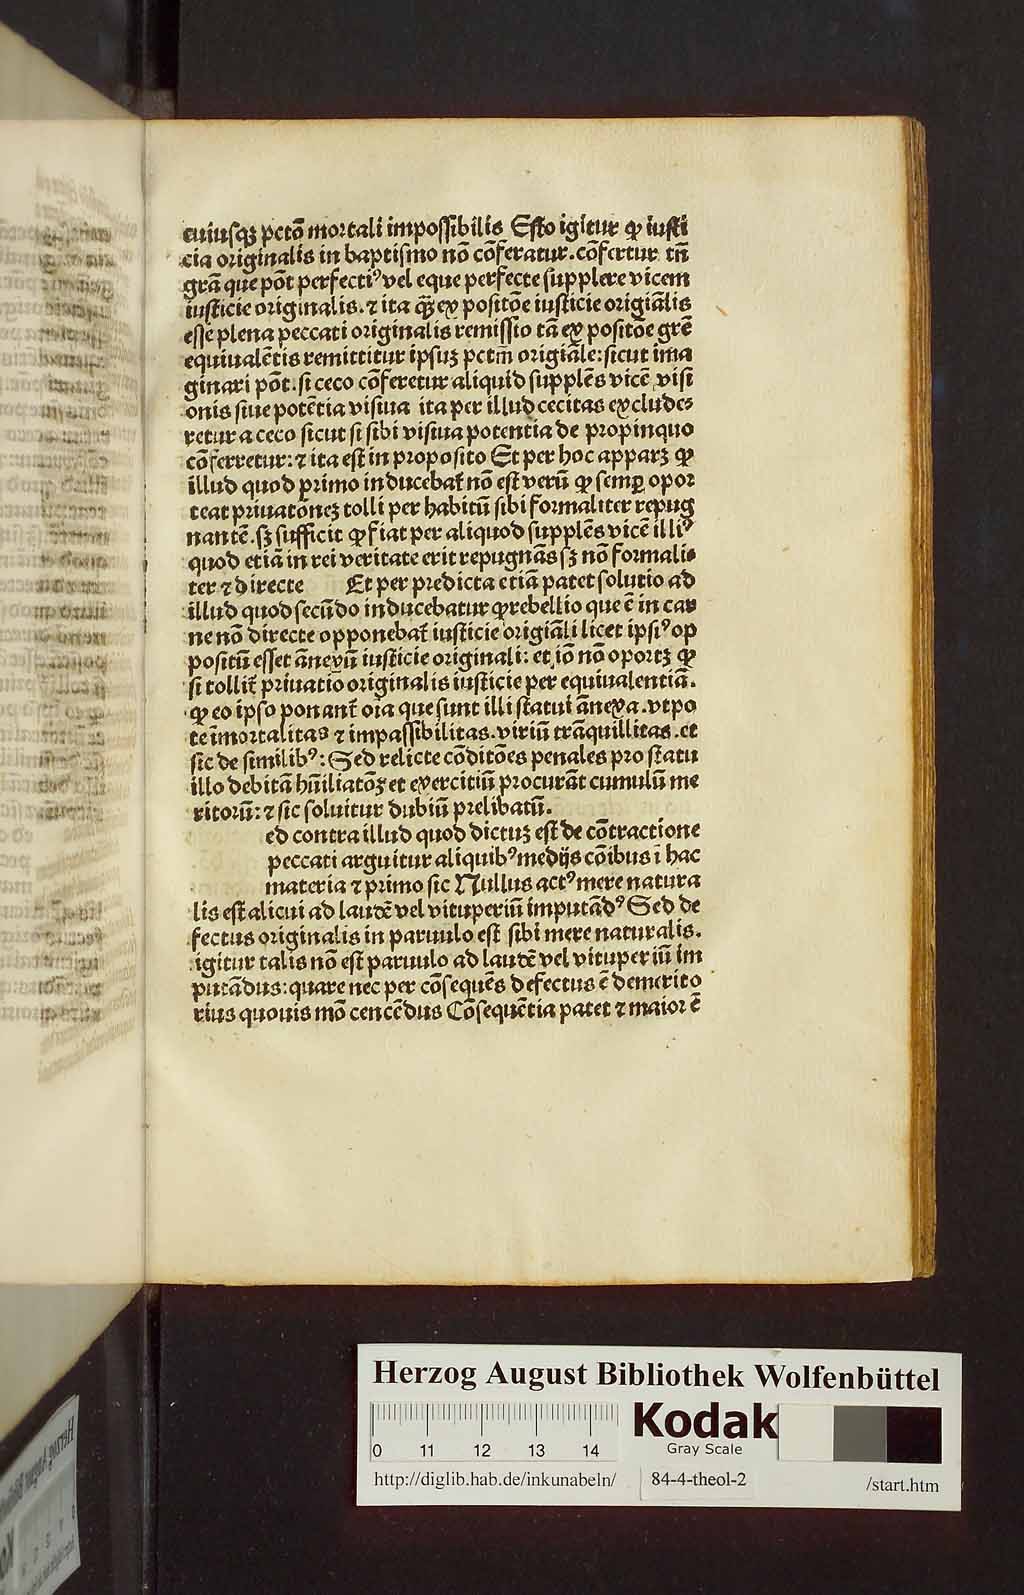 cuiusqꝫ pctō mortali impossibilis Esto igitur ꝙ iusti
cia originalis in baptismo nō cōferatur. cōfertur tn̄
gr̄a que pōt perfecti⁹ vel eque perfecte supplere vicem
iusticie originalis. ⁊ ita qꝫ ex positōe iusticie origiālis
esse plena peccati originalis remissio tā ex positōe gr̄e
equiualētis remittitur ipsuꝫ pctm̄ origiāle: sicut ima
ginari pōt. si ceco cōferetur aliquid supplēs vicē visi
onis siue potētia visiua ita per illud cecitas excludeꝛ
retur a ceco sicut si sibi visiua potentia de propinquo
cōferretur: ⁊ ita est in proposito Et per hoc apparꝫ ꝙ
illud quod primo inducebat̄ nō est verū ꝙ semꝑ opor
teat priuatōneꝫ tolli per habitū sibi formaliter repug
nantē. sꝫ sufficit ꝙ fiat per aliquod supplēs vicē illi⁹
quod etiā in rei veritate erit repugnās sꝫ nō formali⸗
ter ⁊ directe Et per predicta etiā patet solutio ad
illud quod secūdo inducebatur ꝙ rebellio que ē in car
ne nō directe opponebat̄ iusticie origiāli licet ipsi⁹ op
positū esset ānexū iusticie originali: et iō nō oportꝫ ꝙ
si tollit̄ priuatio originalis iusticie per equiualentiā.
ꝙ eo ipso ponant̄ oīa que sunt illi statui ānexa. vtpo
te īmortalitas ⁊ impassibilitas. viriū trāquillitas. et
sic de similib⁹: Sed relicte cōditōes penales pro statu
illo debitā hūiliatōꝫ et exercitiū procurāt cumulū me
ritorū: ⁊ sic soluitur dubiū prelibatū.
ed contra illud quod dictuꝫ est de cōtractione
peccati arguitur aliquib⁹ medijs cōibus ī hac
materia ⁊ primo sic Nullus act⁹ mere natura
lis est alicui ad laudē vel vituperiū imputād⁹ Sed de
fectus originalis in paruulo est sibi mere naturalis.
igitur talis nō est paruulo ad laudē vel vituperiū im
putādus: quare nec per cōsequēs defectus ē demerito
rius quouis mō cencēdus Cōsequētia patet ⁊ maior ē
Herzog August Bibliothek Wolfenbüttel
0 11 12 13 14
Kodak
Gray Scale
http://diglib.hab.de/inkunabeln/ 84-4-theol-2 /start.htm